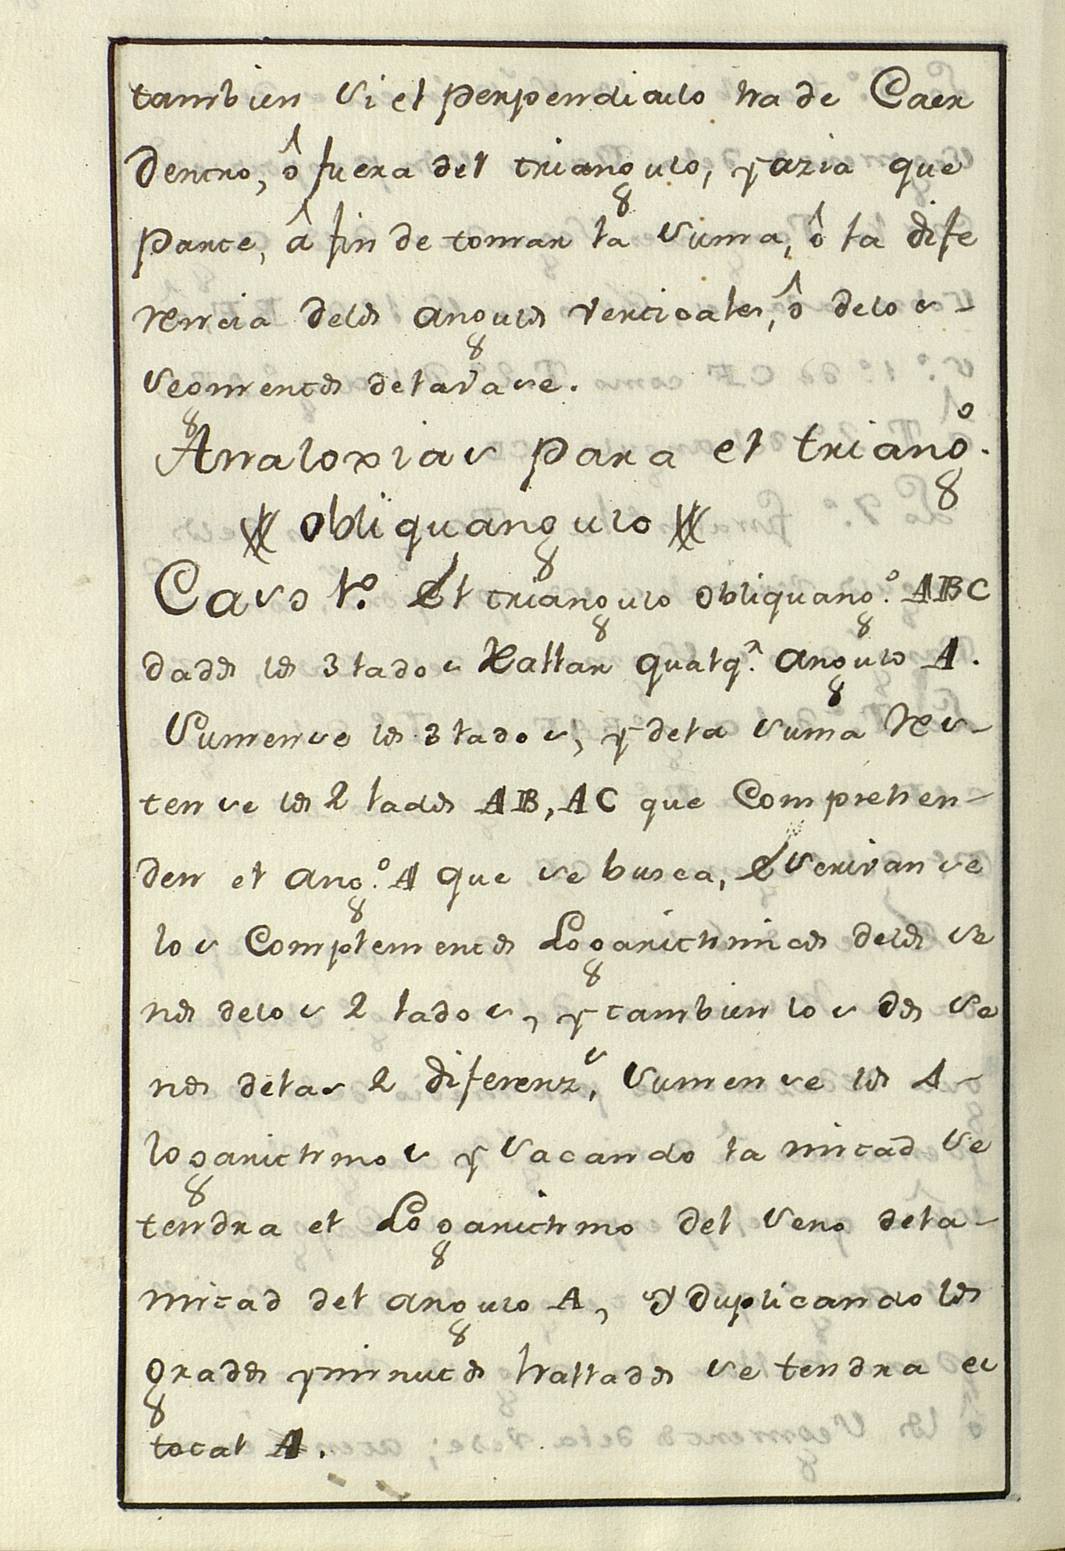 tambien si el perpendiculo ha de Caer
Dentro, ô fuera del triangulo, y azia que
parte, â fin de tomar la suma, ô la dife
rencia delos angulos verticales, ô delos -
segmentos dela vase.
Analoxias para el triang.º
obliquangulo
Caso 1.º El triangulo obliquang.º ABC
dados los 3 lados Hallar qualq.ª angulo A.
Sumense los 3 lados, y dela suma Res-
tense los 2 lados AB, AC que Comprehen-
den el ang.º A que se busca, Escrivanse
los Complementos Logarithmicos delos se
nos delos 2 lados, y tambien los dos se
nos delas 2 diferenz.s, sumense los 4
logarithmos y sacando la mitad se
tendra el Logarithmo del seno dela-
mitad del angulo A, y duplicando los
grados y minutos hallados se tendra el
total A.